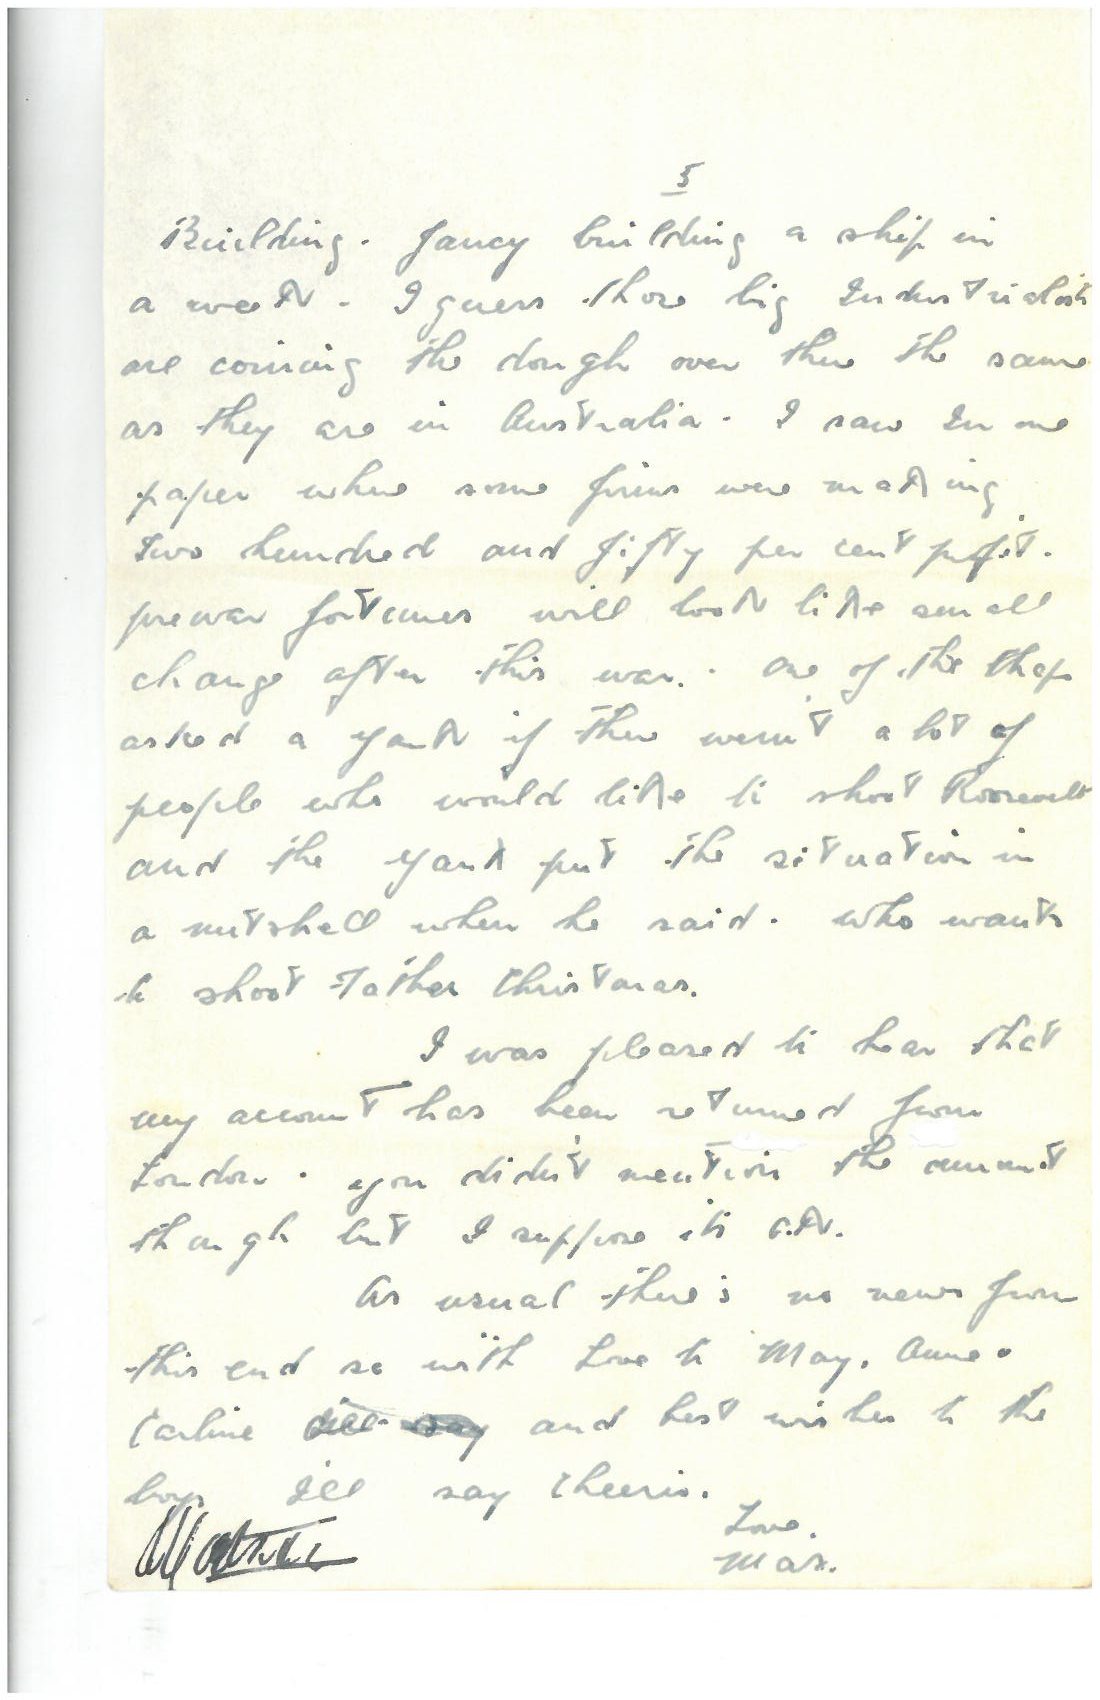 5
Building. Fancy building a ship in
a week. I guess those big Industrialists
are coining the dough over there the same
as they are in Australia. I saw In one
paper where some firms were making
Two hundred and fifty per cent profit.
prewar fortunes will look like small
change after this war. One of the chaps
asked a Yank if there weren't a lot of
people who would like to shoot Roosevelt
and the Yank put the situation in
a nutshell when he said. Who wants
to shoot Father Christmas.
I was pleased to hear that
my account has been returned from
London. You didn't mention the amount
though but I suppose its O.K.
As usual there's no news from
this end so with Love to May, Anne &
Carline and best wishes to the
boys I'll say Cheerio.
Love.
Max.